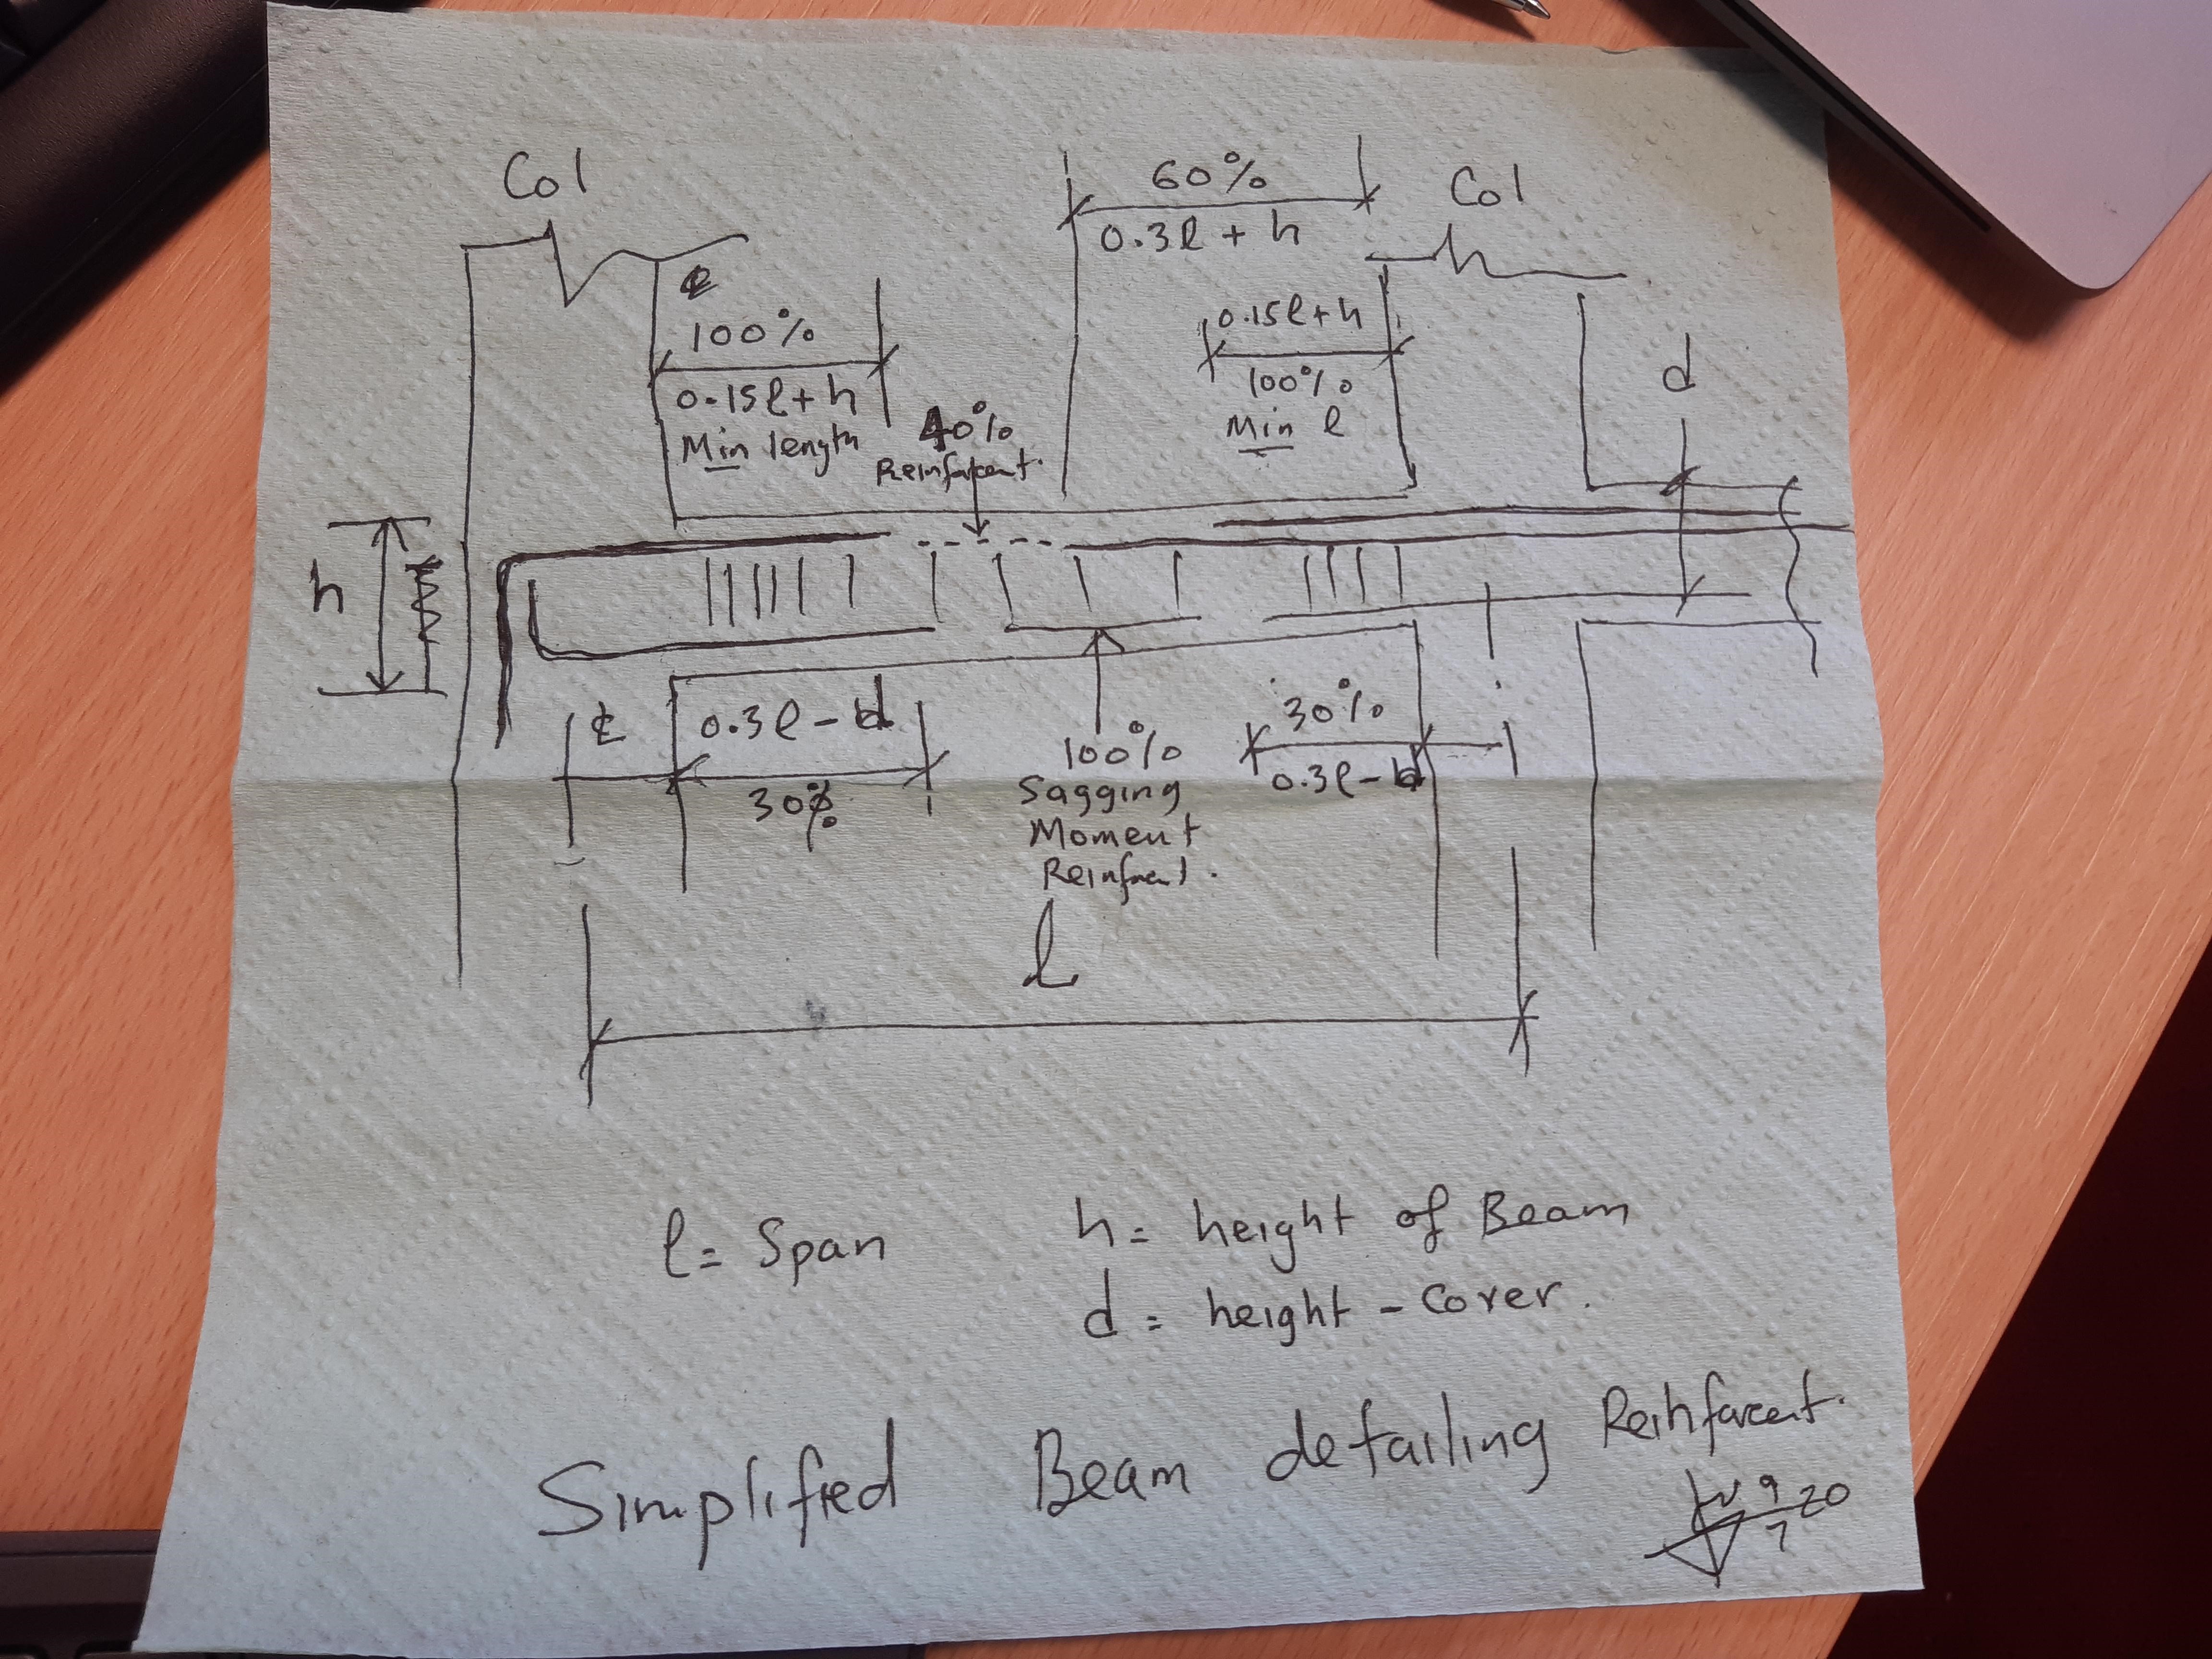 Col
60%
Col
0.3ℓ + h
100%
0.15ℓ+h
Min length
0.15ℓ+h
100%
Min ℓ
d
40%
Reinforcent.
h
℄
0.3ℓ - d
30%
100%
Sagging
Moment
30%
0.3ℓ - d
ℓ
ℓ = Span
h = height of Beam
d = height - Cover.
Simplified Beam detailing Reinforcent.
9
7
20